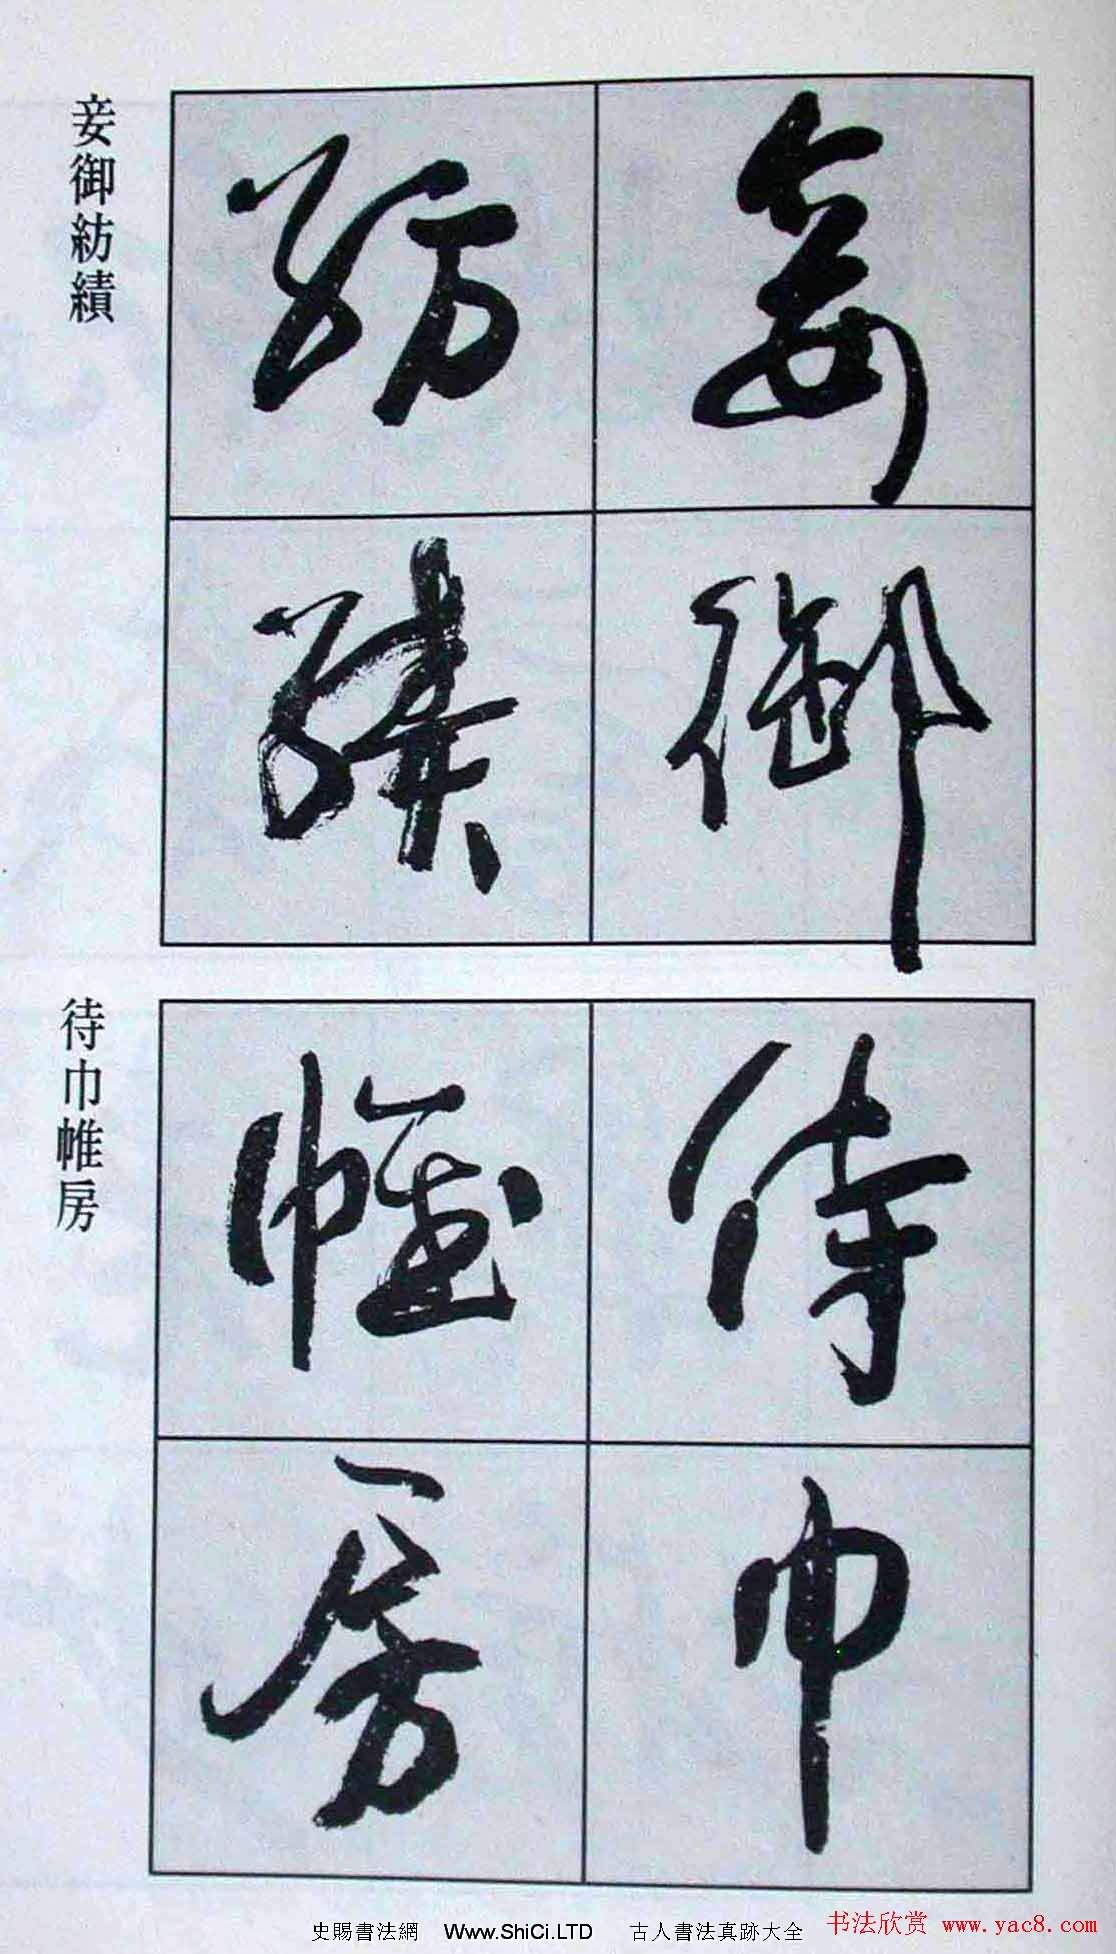 妾御
紡績
妾御紡績
侍巾
帷房
待巾帷房
史賜書法網 Www.ShiCi.LTD 古人書法真跡大全
书法欣赏 www.yac8.com